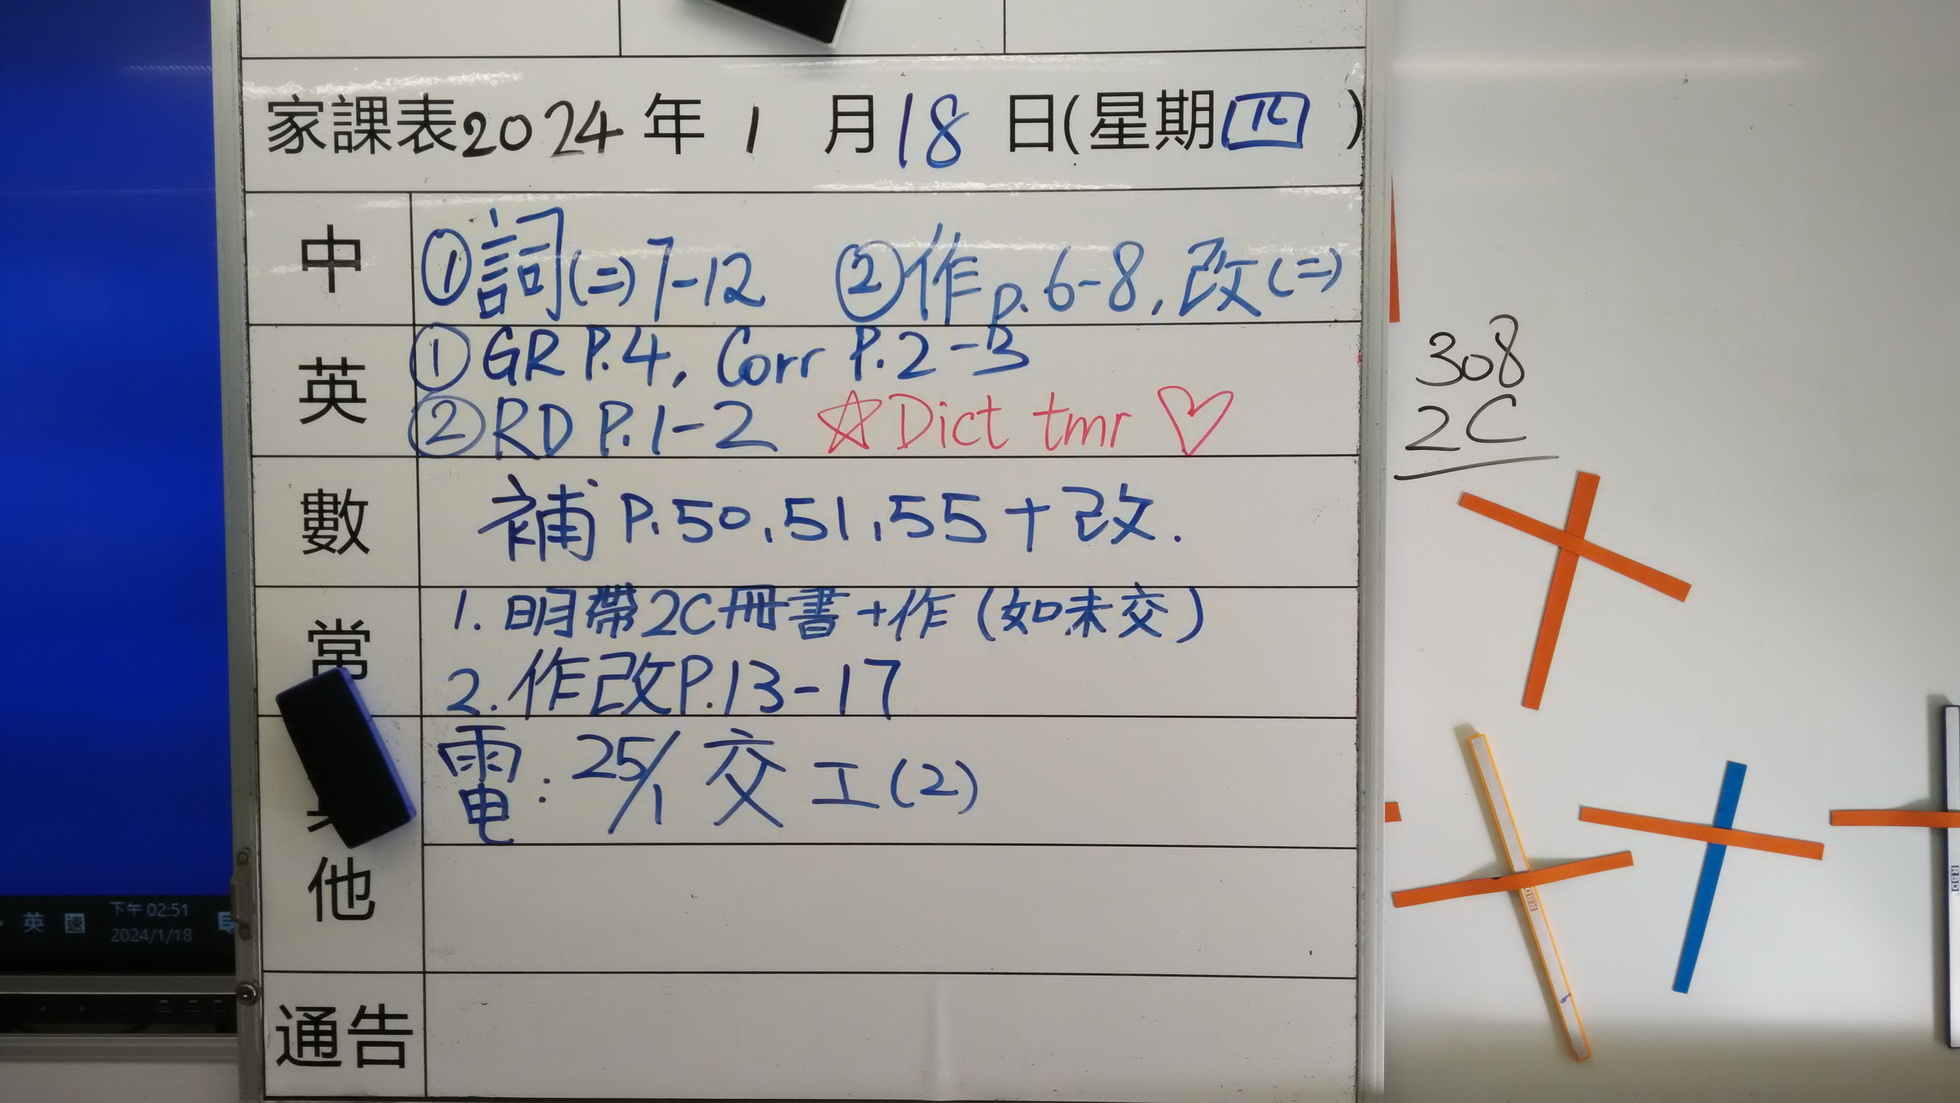 家課表2024年1月18日(星期四)
中
①詞(二)7-12 ②作p.6-8,改(二)
英
①GR P.4, Corr P.2-3
②RD P.1-2 ☆Dict tmr ♡
數
補P.50,51,55+改.
常
1.明帶2C冊書+作(如未交)
2.作改P.13-17
他
電:25/1交工(2)
通告
308
2C
英 速
下午 02:51
2024/1/18